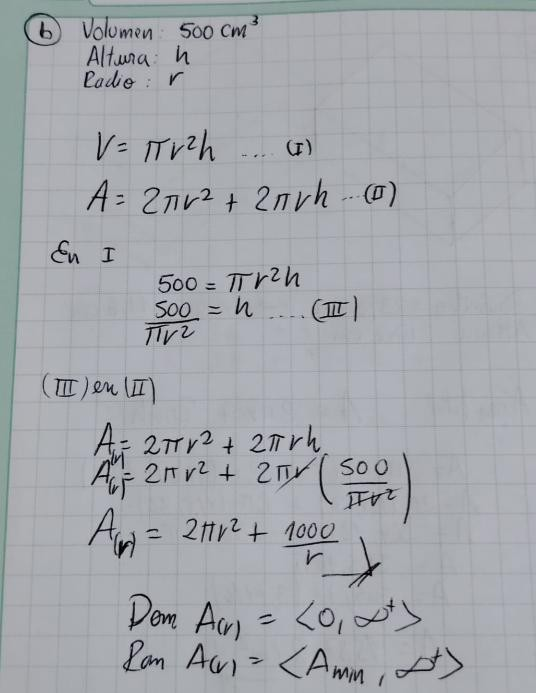 (b) Volumen: 500 cm³
Altura: h
Radio: r
V = πr²h .... (I)
A = 2πr² + 2πrh ... (II)
En I
500 = πr²h
500/πr² = h .... (III)
(III) en (II)
A(r) = 2πr² + 2πrh
A(r) = 2πr² + 2πr (500/πr²)
A(r) = 2πr² + 1000/r
Dom A(r) = <0, ∞⁺>
Ran A(r) = <Amin, ∞⁺>